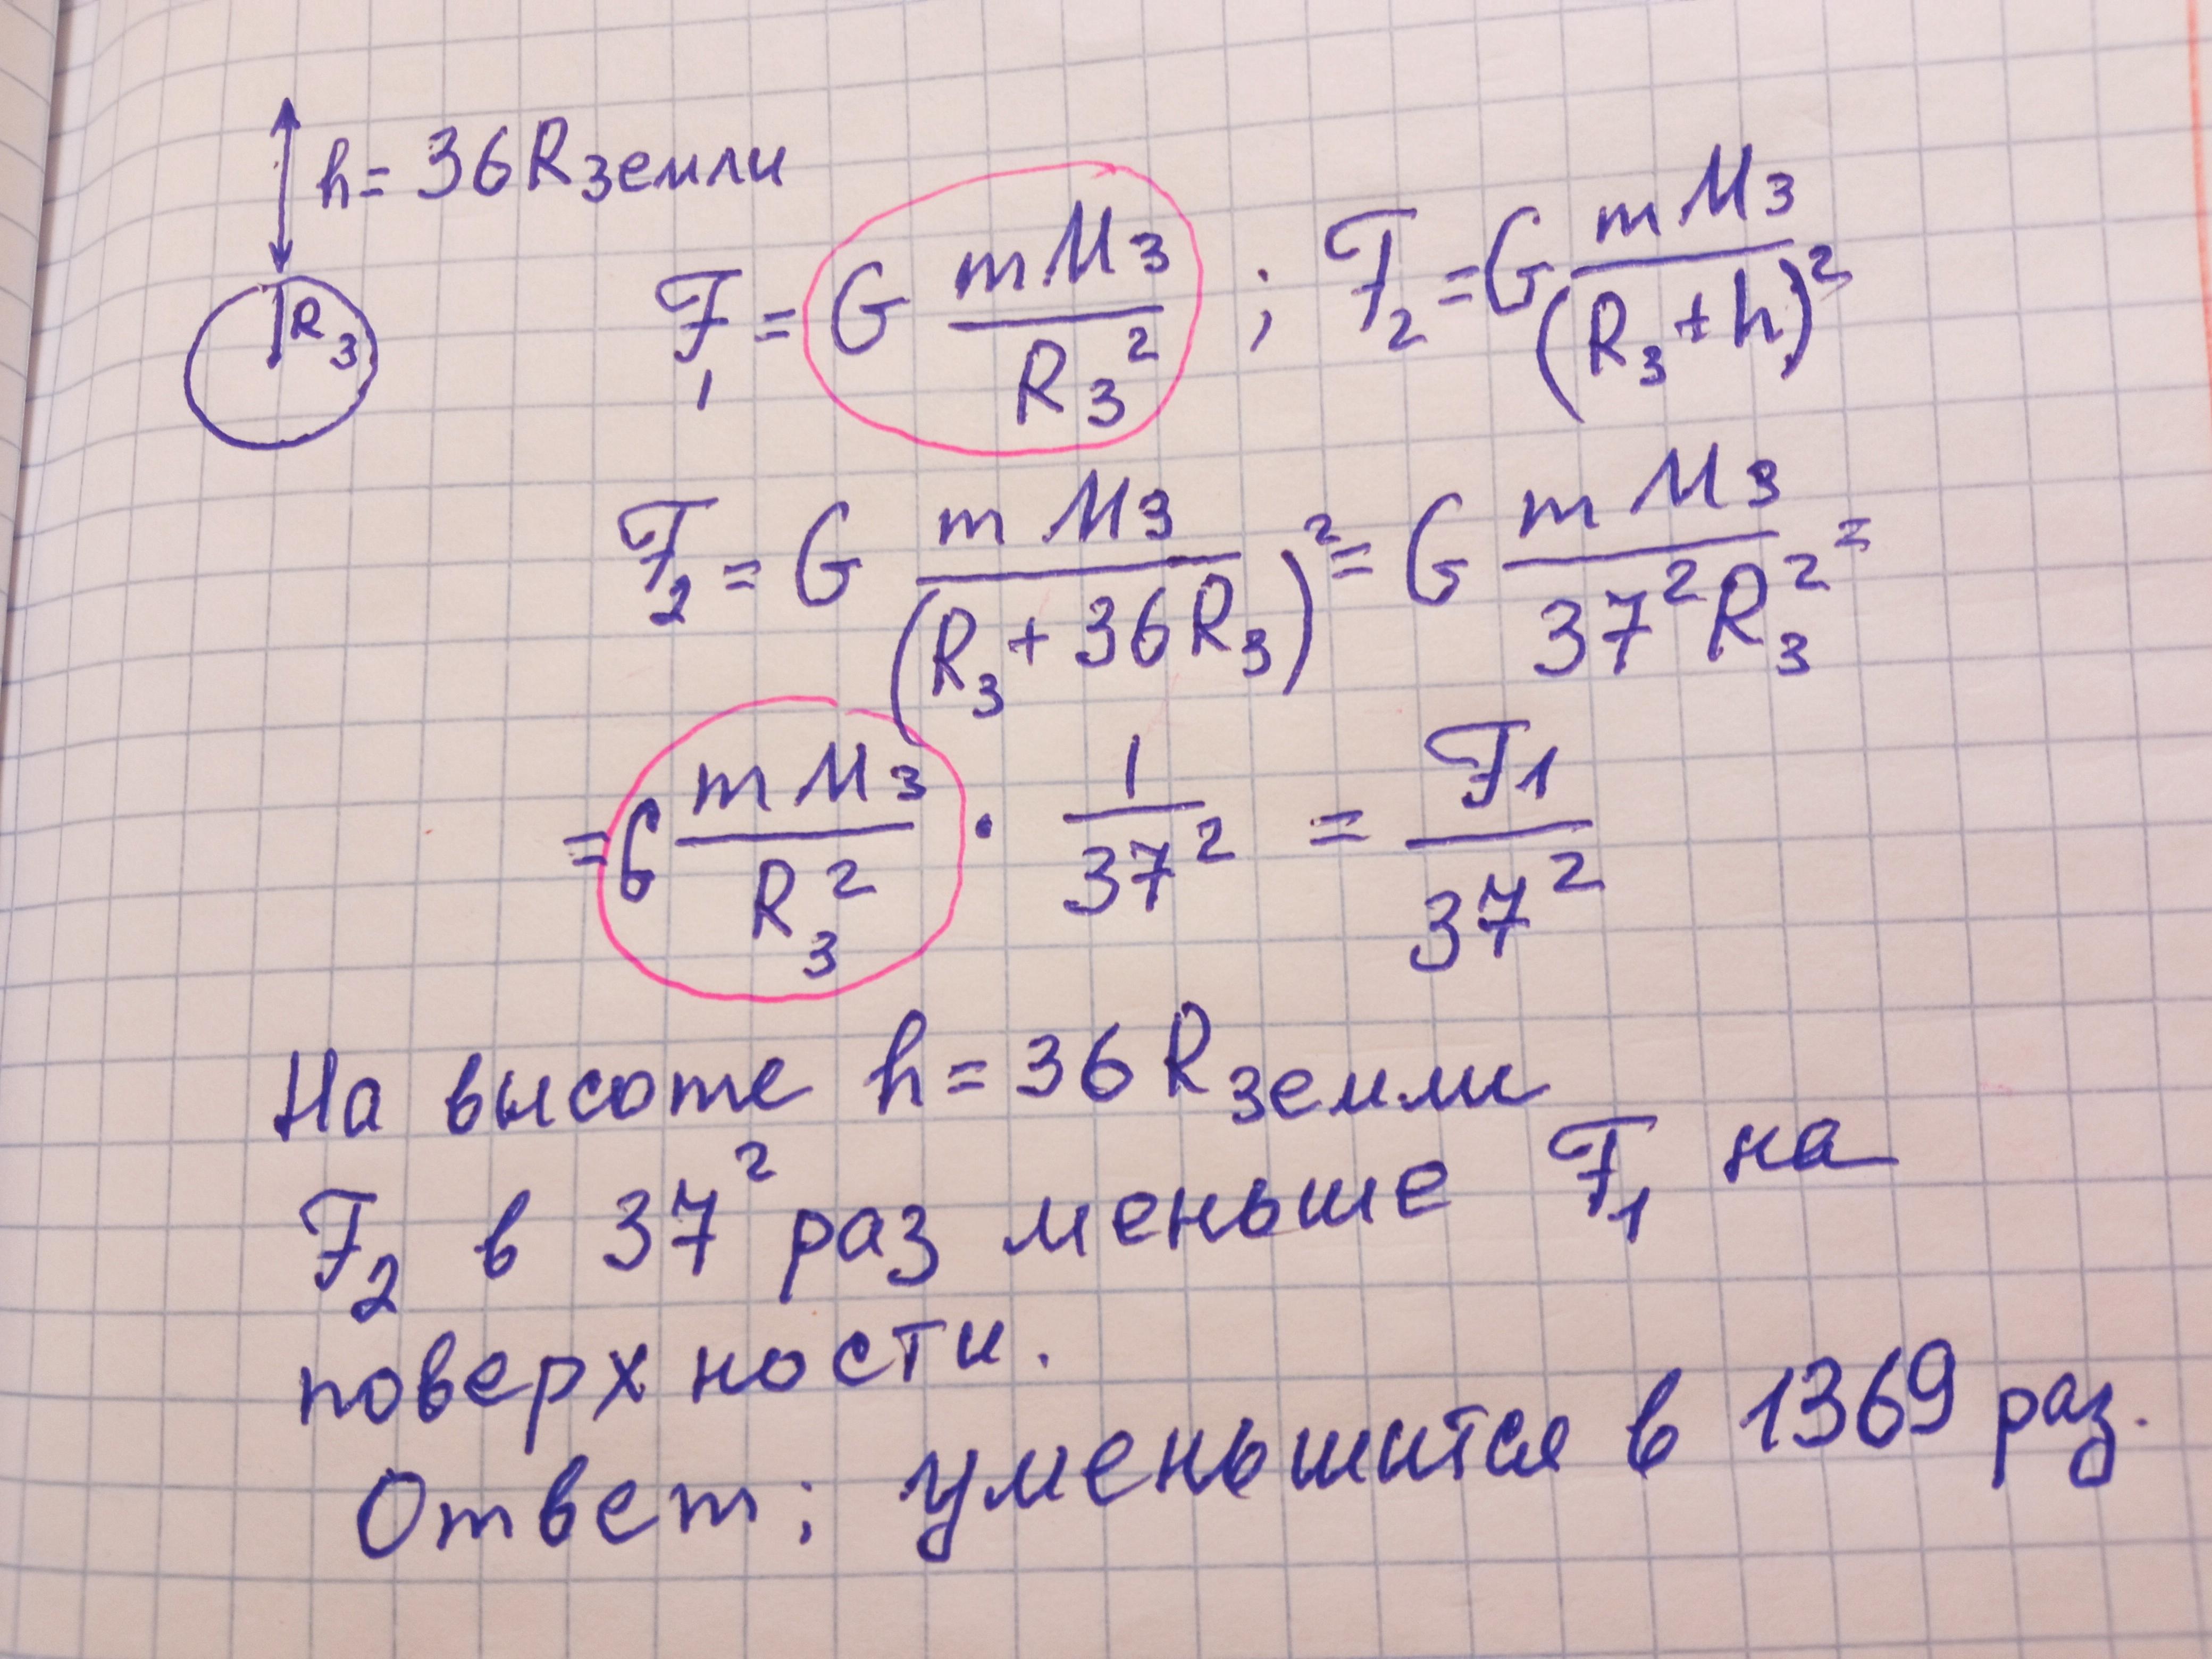 h = 36Rземли
Rз
F₁ = G mMз / Rз² ; F₂ = G mMз / (Rз + h)²
F₂ = G mMз / (Rз + 36Rз)² = G mMз / 37²Rз² =
= G mMз / Rз² · 1 / 37² = F1 / 37²
На высоте h = 36Rземли
F₂ в 37² раз меньше F₁ на
поверхности.
Ответ: уменьшится в 1369 раз.